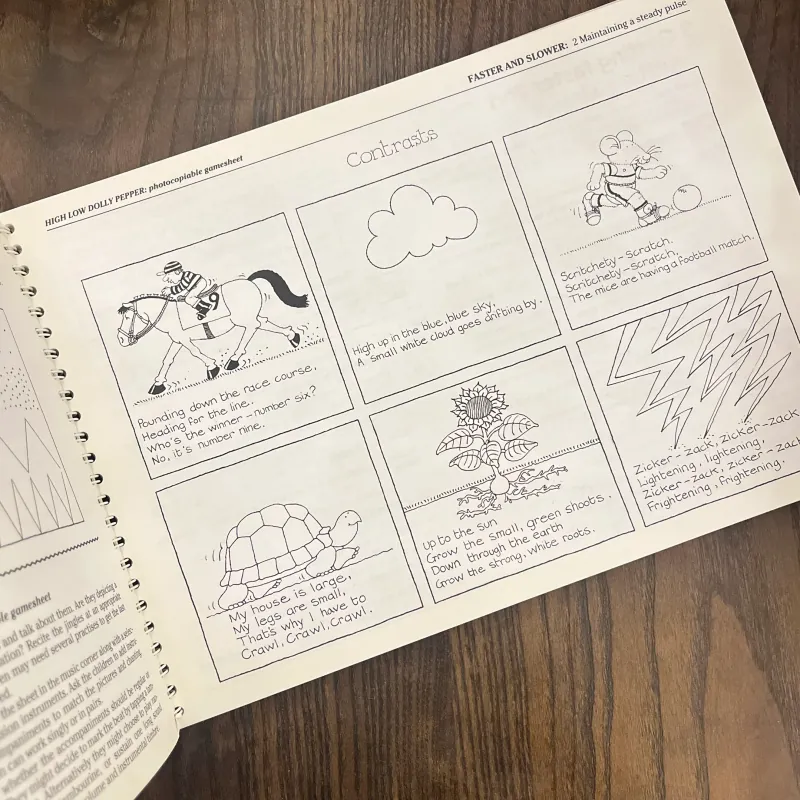 FASTER AND SLOWER: 2 Maintaining a steady pulse
HIGH LOW DOLLY PEPPER: photocopiable gamesheet
Contrasts
Pounding down the race course,
Heading for the line.
Who's the winner - number six?
No, it's number nine.
High up in the blue, blue sky,
A small white cloud goes drifting by.
Scritchety-scratch,
Scritchety-scratch,
The mice are having a football match.
My house is large,
My legs are small,
That's why I have to
Crawl, Crawl, Crawl.
Up to the sun
Grow the small, green shoots.
Down through the earth
Grow the strong, white roots.
Zicker-zack, zicker-zack
Lightening, lightening,
Zicker-zack, zicker-zack
Frightening, frightening.
gamesheet
and talk about them. Are they depicting a
Recite the jingles at an appropriate
may need several practises to get the feel
the sheet in the music corner along with a
instruments. Ask the children to add
to match the pictures and
can work singly or in pairs.
whether the accompaniments should be regular or
might decide to mark the beat by tapping a
Alternatively they might choose to play
or sustain one long sound
volume and instrumental timbre.